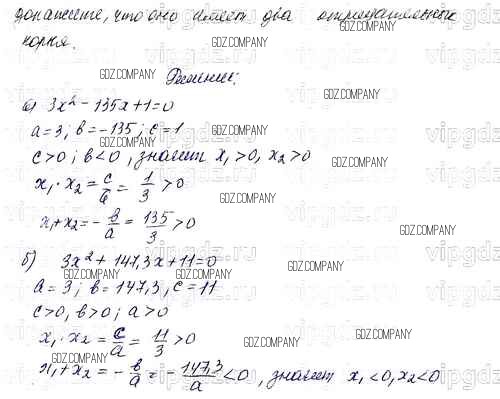 докажите, что оно имеет два отрицательных
корня.
Решение:
а) 3x² - 135x + 1 = 0
a = 3; b = -135; c = 1
c > 0; b < 0, значит x₁ > 0, x₂ > 0
x₁ · x₂ = c/a = 1/3 > 0
x₁ + x₂ = - b/a = 135/3 > 0
б) 3x² + 147,3x + 11 = 0
a = 3; b = 147,3; c = 11
c > 0, b > 0; a > 0
x₁ · x₂ = c/a = 11/3 > 0
x₁ + x₂ = - b/a = - 147,3/a < 0, значит x₁ < 0, x₂ < 0
GDZ.COMPANY
vipgdz.ru